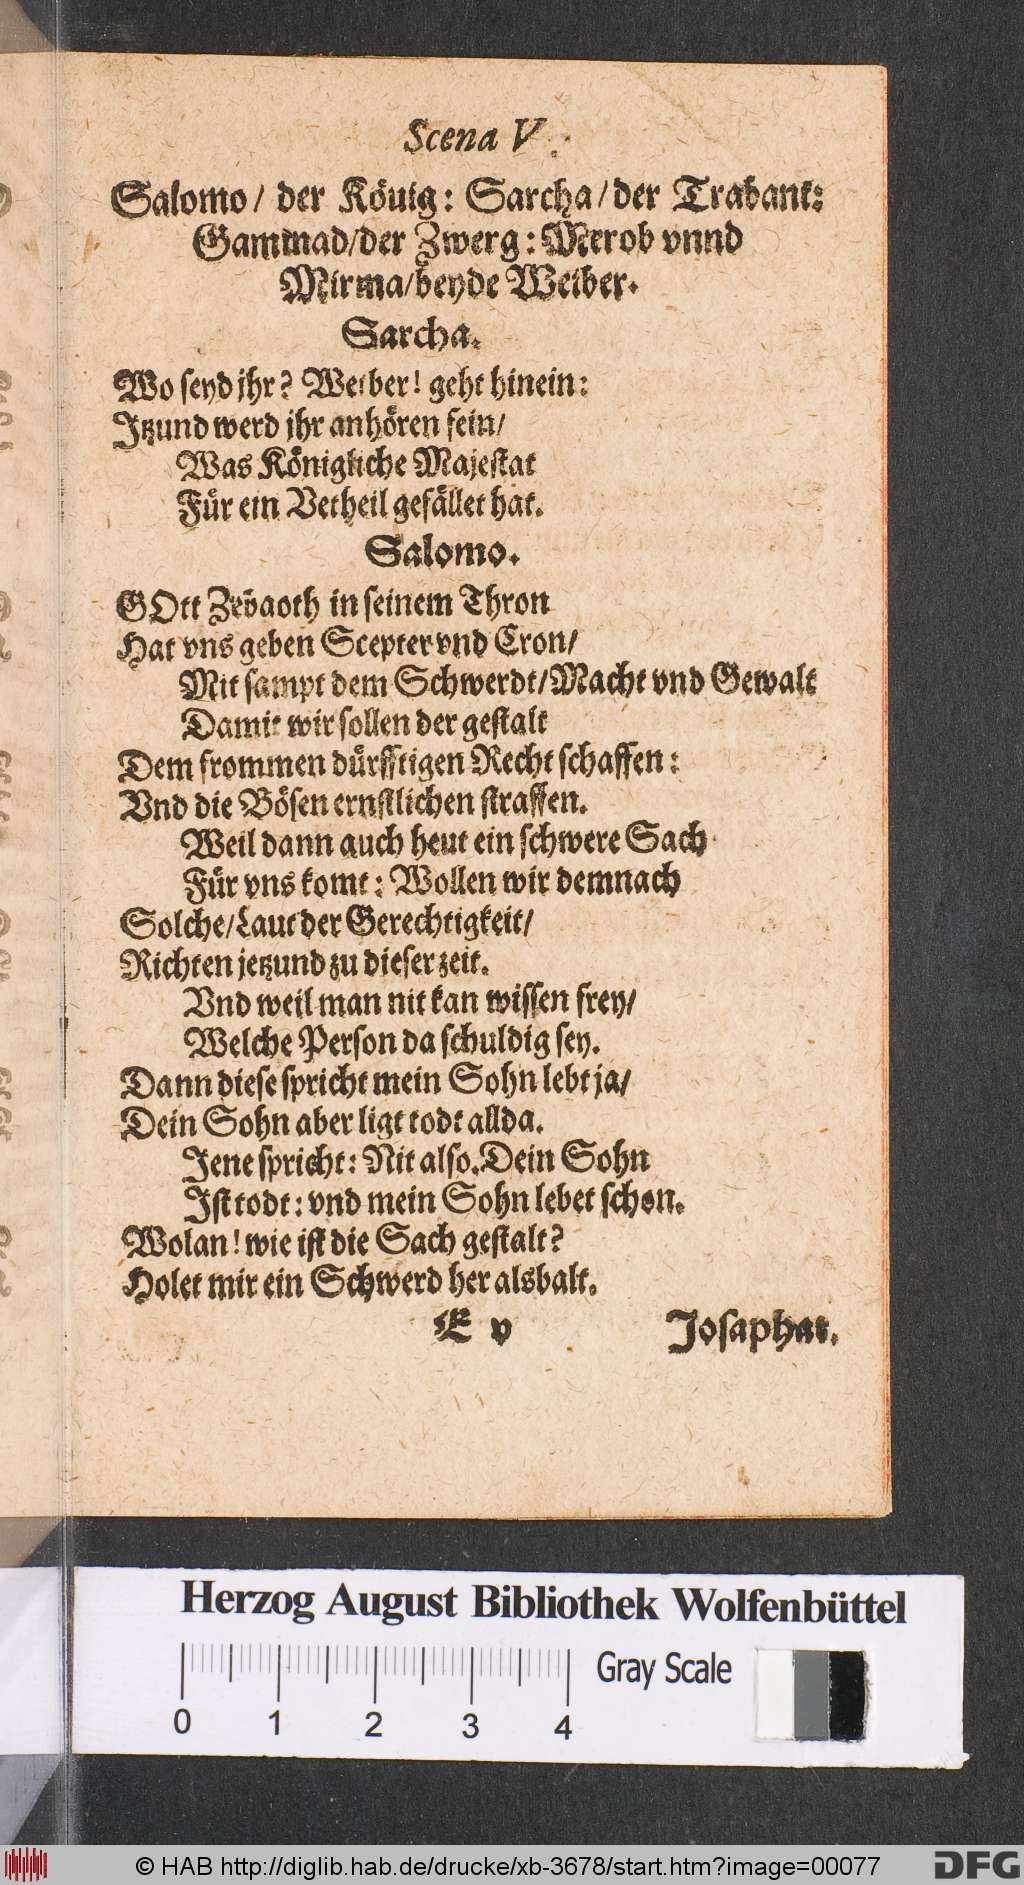 Scena V.
Salomo/ der Köuig: Sarcha/der Trabant:
Gammad/der Zwerg: Merob vnnd
Mirma/beyde Weiber.
Sarcha.
Wo seyd jhr? Weiber! geht hinein:
Jtzund werd jhr anhören fein/
Was Königliche Majestat
Für ein Vetheil gefället hat.
Salomo.
GOtt Zebaoth in seinem Thron
Hat vns geben Scepter vnd Cron/
Mit sampt dem Schwerdt/Macht vnd Gewalt
Damit wir sollen der gestalt
Dem frommen dürfftigen Recht schaffen:
Vnd die Bösen ernstlichen straffen.
Weil dann auch heut ein schwere Sach
Für vns komt: Wollen wir demnach
Solche/Laut der Gerechtigkeit/
Richten jetzund zu dieser zeit.
Vnd weil man nit kan wissen frey/
Welche Person da schuldig sey.
Dann diese spricht mein Sohn lebt ja/
Dein Sohn aber ligt todt allda.
Jene spricht: Nit also. Dein Sohn
Jst todt: vnd mein Sohn lebet schon.
Wolan! wie ist die Sach gestalt?
Holet mir ein Schwerd her alsbalt.
E v Josaphat.
Herzog August Bibliothek Wolfenbüttel
0 1 2 3 4 Gray Scale
© HAB http://diglib.hab.de/drucke/xb-3678/start.htm?image=00077 DFG